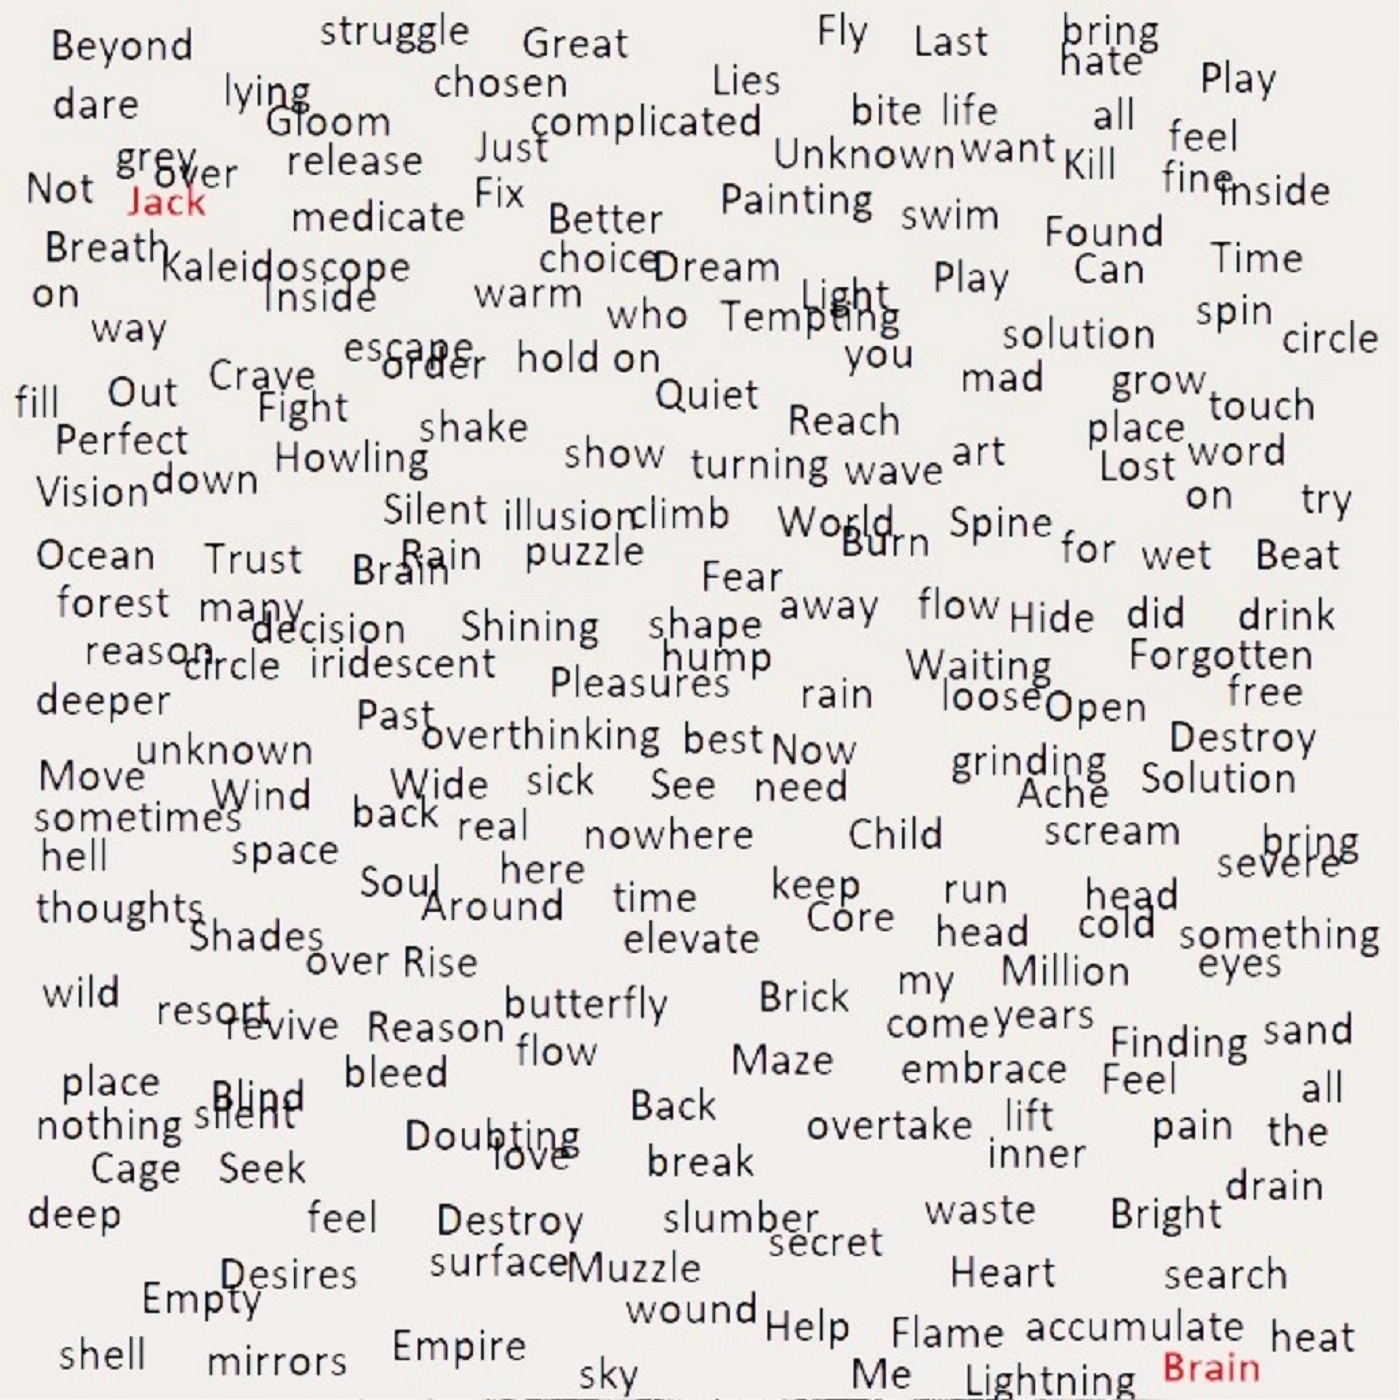 Beyond struggle Great Fly Last bring
hate
dare lying chosen Lies Play
Gloom complicated bite life all
grey release Just Unknown want Kill feel
Not over Fix Painting fine inside
Jack medicate Better swim Found
Breath Kaleidoscope choice Dream Play Can Time
on Inside warm who Tempting Light spin
way escape order hold on you solution circle
fill Out Crave Quiet mad grow touch
Fight shake Reach place
Perfect Howling show turning wave art Lost word
Vision down Silent illusion climb World Spine on try
Ocean Trust Brain Rain puzzle Fear Burn for wet Beat
forest many away flow Hide did drink
decision Shining shape
reason circle iridescent hump Waiting Forgotten
deeper Pleasures rain loose Open free
Past overthinking best Now Destroy
unknown grinding
Move Wind Wide sick See need Ache Solution
sometimes back real nowhere Child scream bring
hell space here severe
Soul time keep run head
thoughts Around Core head cold something
Shades over Rise elevate eyes
wild resort butterfly Brick my Million
revive Reason come years Finding sand
flow Maze embrace Feel all
place Blind bleed
nothing silent Doubting Back overtake lift pain the
love
Cage Seek break inner drain
deep feel Destroy slumber waste Bright
secret
Desires surface Muzzle Heart search
Empty wound Help Flame accumulate heat
shell mirrors Empire sky Me Lightning Brain